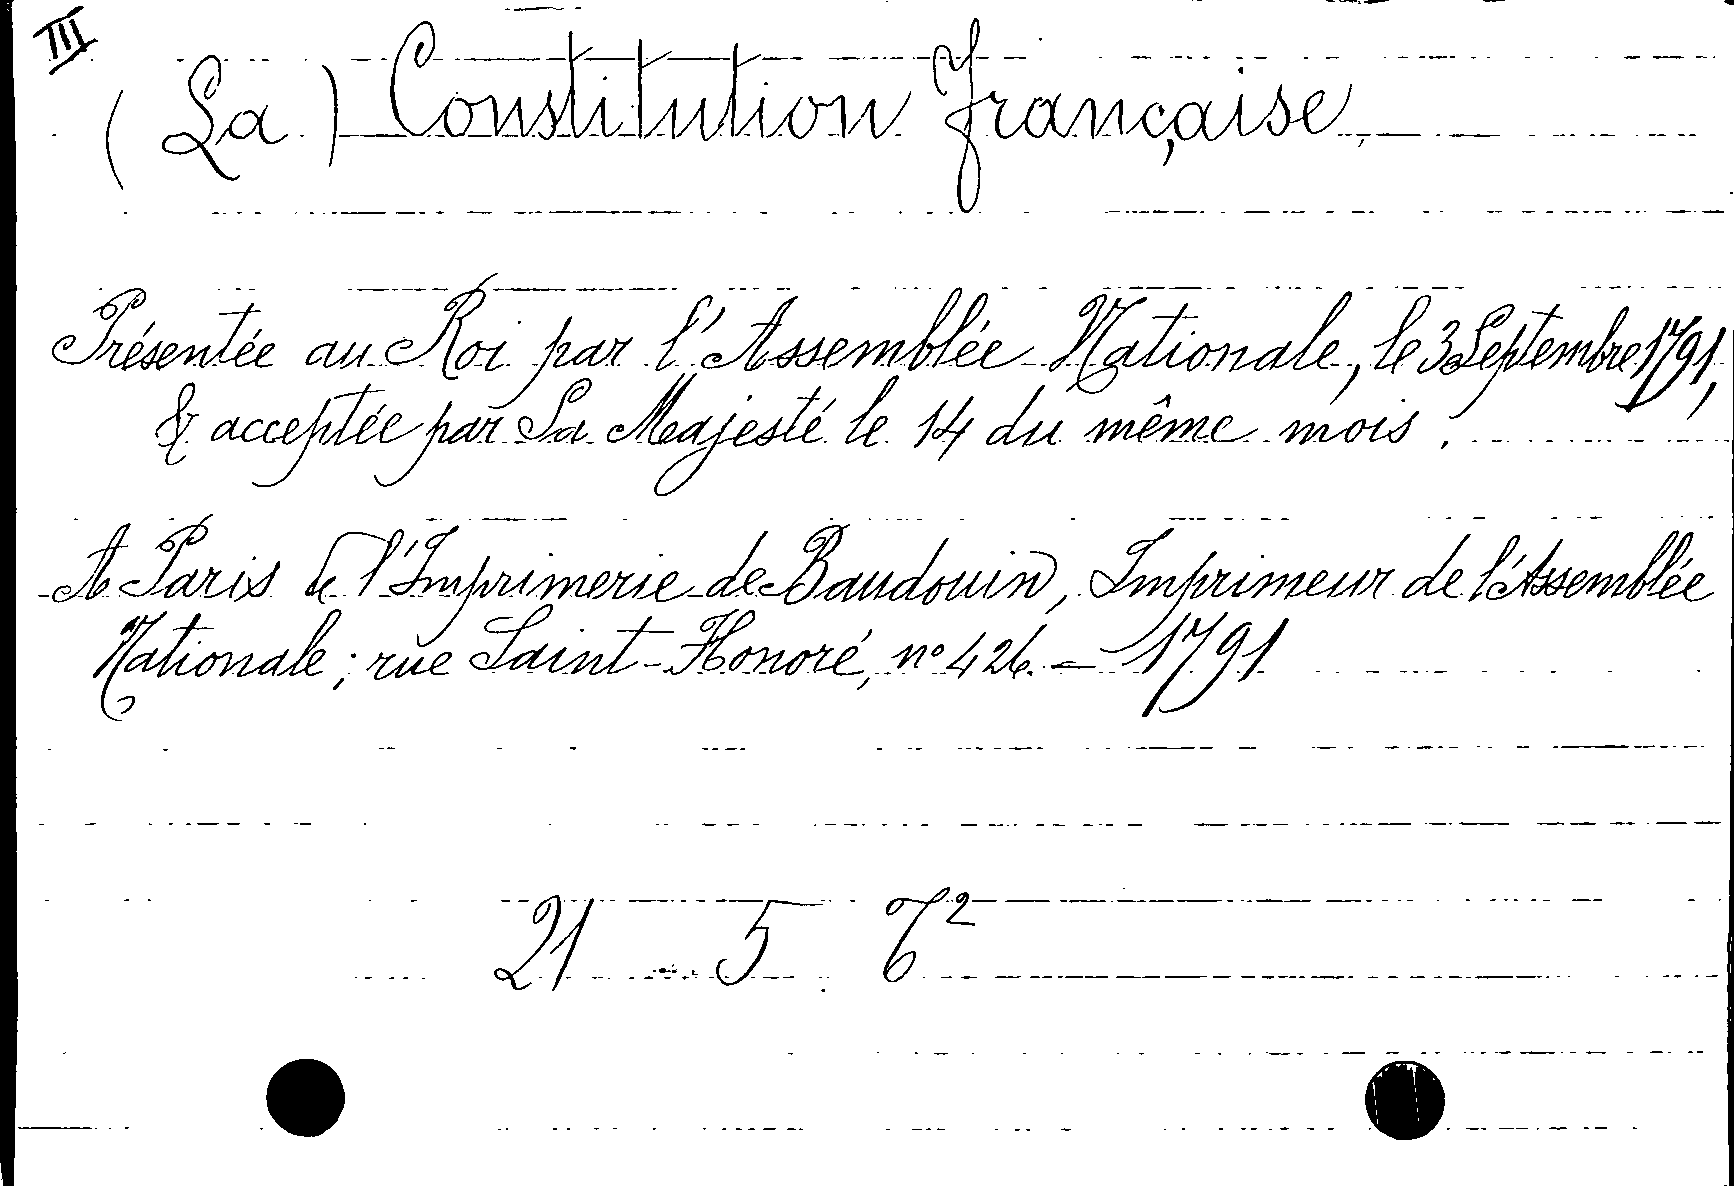 III
(La) Constitution française
Présentée au Roi par l'Assemblée Nationale, le 3 Septembre 1791,
& acceptée par Sa Majesté le 14 du même mois.
A Paris de l'Imprimerie de Baudouin, Imprimeur de l'Assemblée
Nationale; rue Saint-Honoré, n° 426. — 1791
21 5 6²